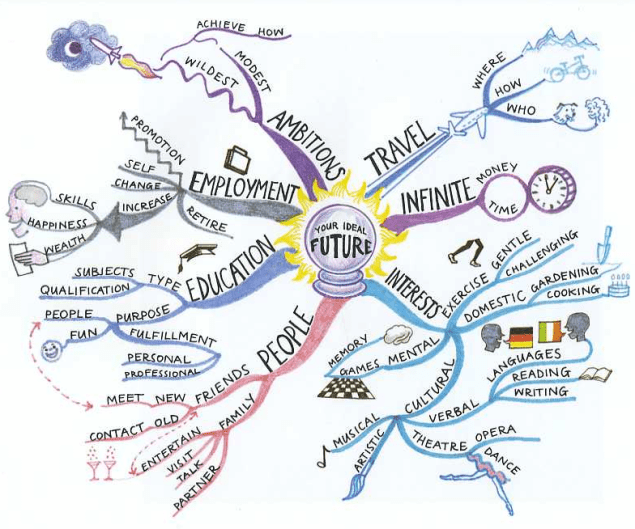 YOUR IDEAL
FUTURE
TRAVEL
WHERE
HOW
WHO
INFINITE
MONEY
TIME
INTERESTS
EXERCISE
GENTLE
CHALLENGING
DOMESTIC
GARDENING
COOKING
MENTAL
MEMORY
GAMES
CULTURAL
VERBAL
LANGUAGES
READING
WRITING
THEATRE
OPERA
DANCE
MUSICAL
ARTISTIC
PEOPLE
FRIENDS
MEET NEW
CONTACT OLD
FAMILY
ENTERTAIN
VISIT
TALK
PARTNER
EDUCATION
TYPE
SUBJECTS
QUALIFICATION
PURPOSE
PEOPLE
FUN
FULFILLMENT
PERSONAL
PROFESSIONAL
EMPLOYMENT
PROMOTION
SELF
CHANGE
INCREASE
SKILLS
HAPPINESS
WEALTH
RETIRE
AMBITIONS
MODEST
WILDEST
ACHIEVE HOW